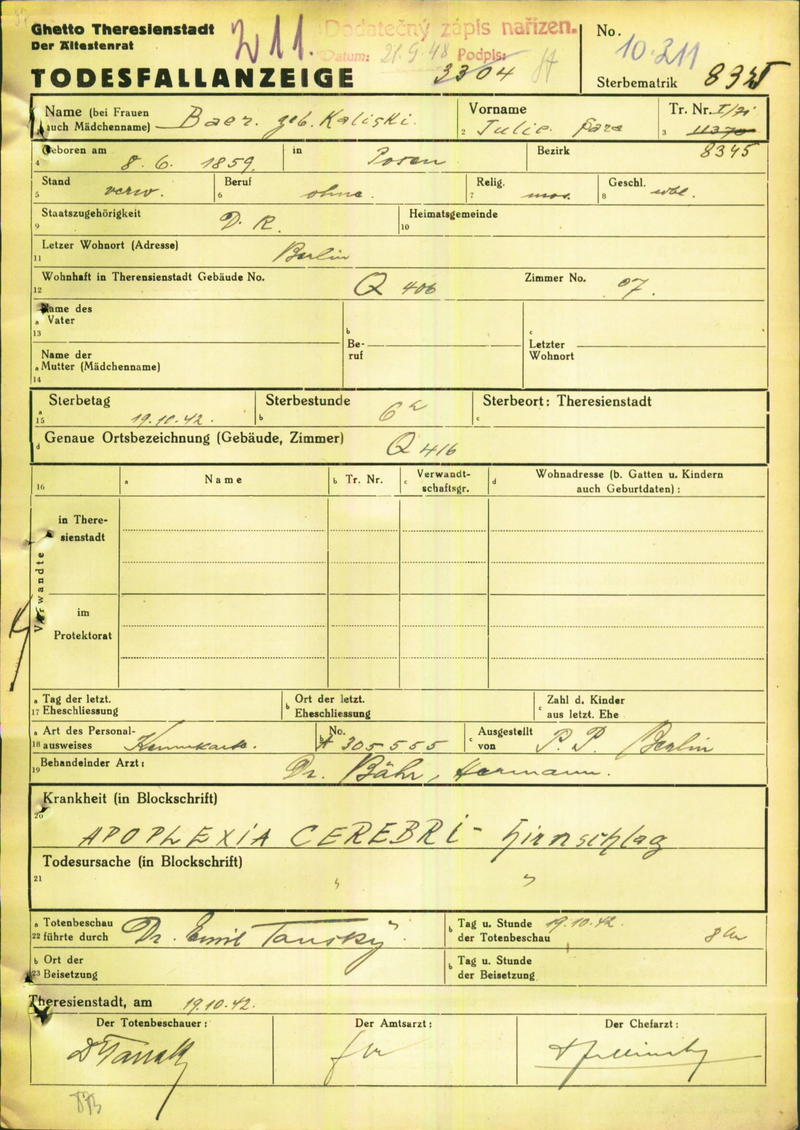 Ghetto Theresienstadt
Der Ältestenrat
TODESFALLANZEIGE
211.
Dodatečný zápis nařízen.
Datum: 21.9.48 Podpis:
3304
No.
10.211
Sterbematrik 835
Name (bei Frauen auch Mädchenname) Baer. geb. Kaliski.
Vorname
2 Julie Sara
Tr. Nr. I/71
3 11370
8345
Geboren am
4 8. 6. 1859. in Posen
Bezirk
Stand
5 verw.
Beruf
6 ohne.
Relig.
7 mos.
Geschl.
8 wbl.
Staatszugehörigkeit
9 D. R.
Heimatsgemeinde
10
Letzer Wohnort (Adresse)
11 Berlin
Wohnhaft in Therensienstadt Gebäude No.
12 Q 406
Zimmer No. 07.
Name des
a Vater
13
Name der
a Mutter (Mädchenname)
14
b
Be-
ruf
c
Letzter
Wohnort
a Sterbetag
15 19.10.42.
Sterbestunde
b 6 h
Sterbeort: Theresienstadt
c
d Genaue Ortsbezeichnung (Gebäude, Zimmer) Q 416
16
a Name
b Tr. Nr.
c Verwandt-
schaftsgr.
d Wohnadresse (b. Gatten u. Kindern
auch Geburtdaten) :
Verwandte
in There-
sienstadt
im
Protektorat
a Tag der letzt.
17 Eheschliessung
b Ort der letzt.
Eheschliessung
c Zahl d. Kinder
aus letzt. Ehe
a Art des Personal-
18 ausweises Kennkarte.
b No.
A 305555
c Ausgestellt
von P. P. Berlin
19 Behandelnder Arzt: Dr. Bähr, Hermann.
Krankheit (in Blockschrift)
20
APOPLEXIA CEREBRI - Hirnschlag
Todesursache (in Blockschrift)
21 " "
a Totenbeschau
22 führte durch Dr. Emil Tansky.
b Tag u. Stunde
der Totenbeschau 19.10.42. 8 Uhr
b Ort der
23 Beisetzung
b Tag u. Stunde
der Beisetzung
Theresienstadt, am 19.10.42.
Der Totenbeschauer:
Dr Tansky
Der Amtsarzt:
Der Chefarzt: